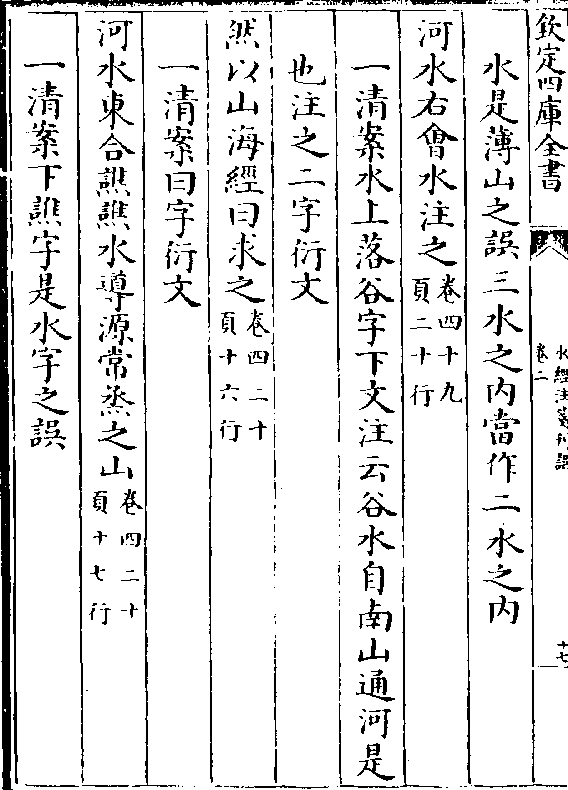 欽定四庫全書
水經注箋刊誤
卷二
十七
水是薄山之誤三水之内當作二水之内
河水右會水注之卷四十九頁二十行
一清案水上落谷字下文注云谷水自南山通河是
也注之二字衍文
然以山海經曰求之卷四二十頁十六行
一清案曰字衍文
河水東合譙譙水導源常烝之山卷四二十頁十七行
一清案下譙字是水字之誤